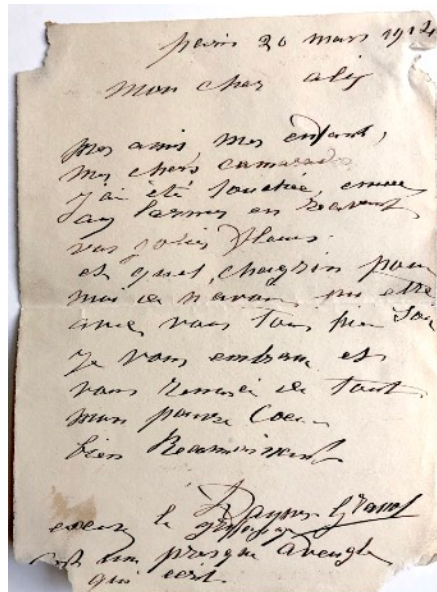 Paris 20 mars 1912
mon cher alis
mes amis, mes enfants,
mes chers camarades
j'ai été touchée, émue
aux larmes en recevant
vos jolies fleurs.
et quel chagrin pour
moi de n'avoir pu etre
avec vous tous hier soir
je vous embrasse et
vous remercie de tout
mon pauvre Coeur
bien Reconnaissant
excusez le griffonnage
c'est une presque aveugle
qui écrit